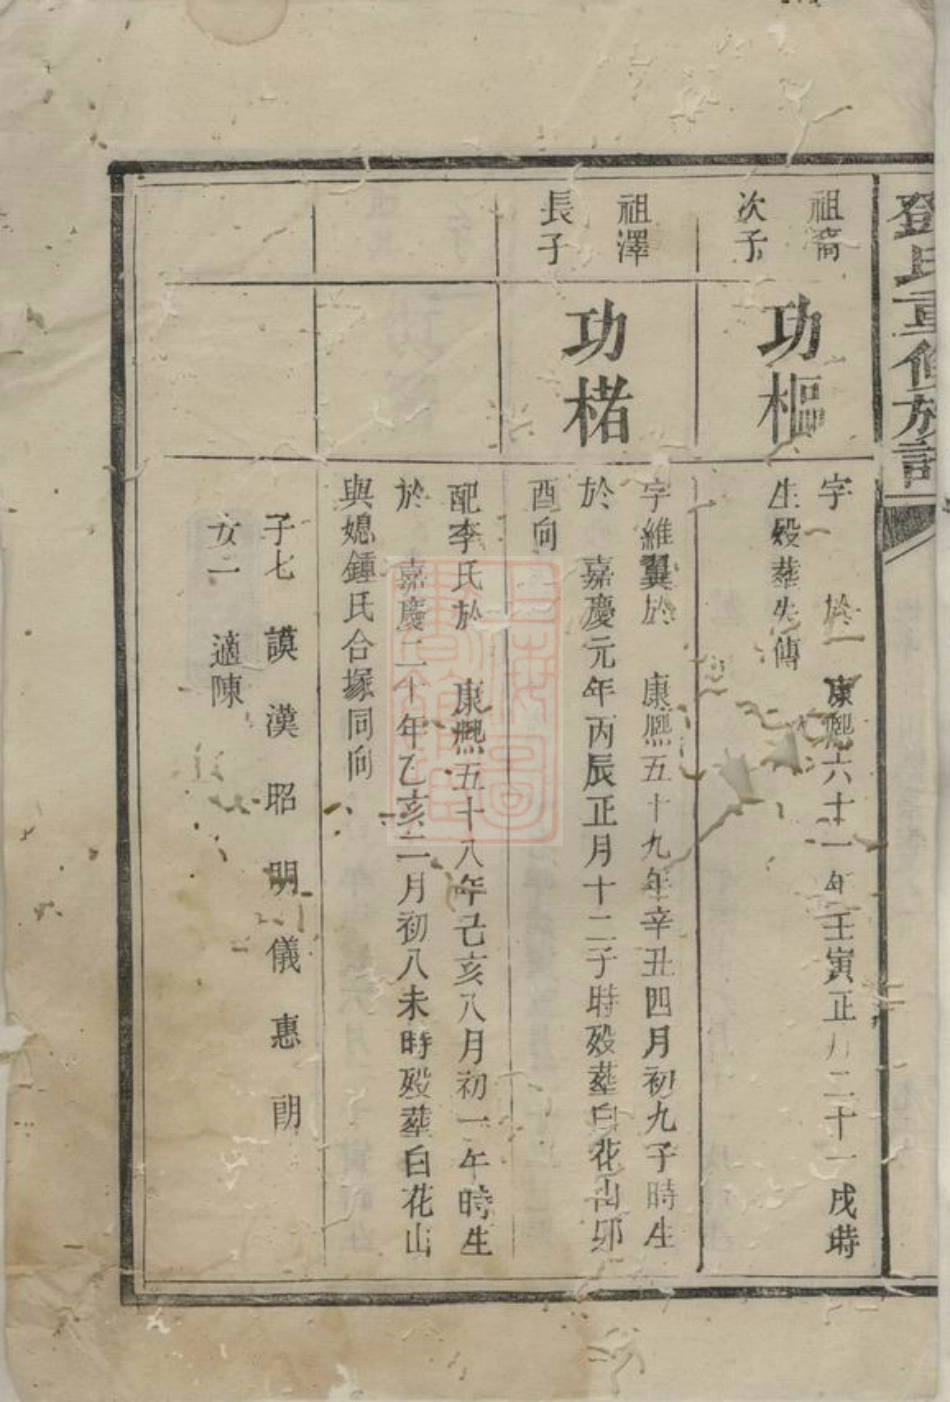 鄧氏重修族譜
祖裔
次子
功樞
字 於 康熈六十一年壬寅正月二十一戌時
生殁塟失傳
祖澤
長子
功楮
字維翼於 康熈五十九年辛丑四月初九子時生
於 嘉慶元年丙辰正月十二子時殁塟白花山卯
酉向
配李氏於 康熈五十八年己亥八月初一午時生
於 嘉慶二十年乙亥二月初八未時殁塟白花山
與媳鍾氏合塚同向
子七 謨 漢 昭 明 儀 惠 朗
女二 適陳